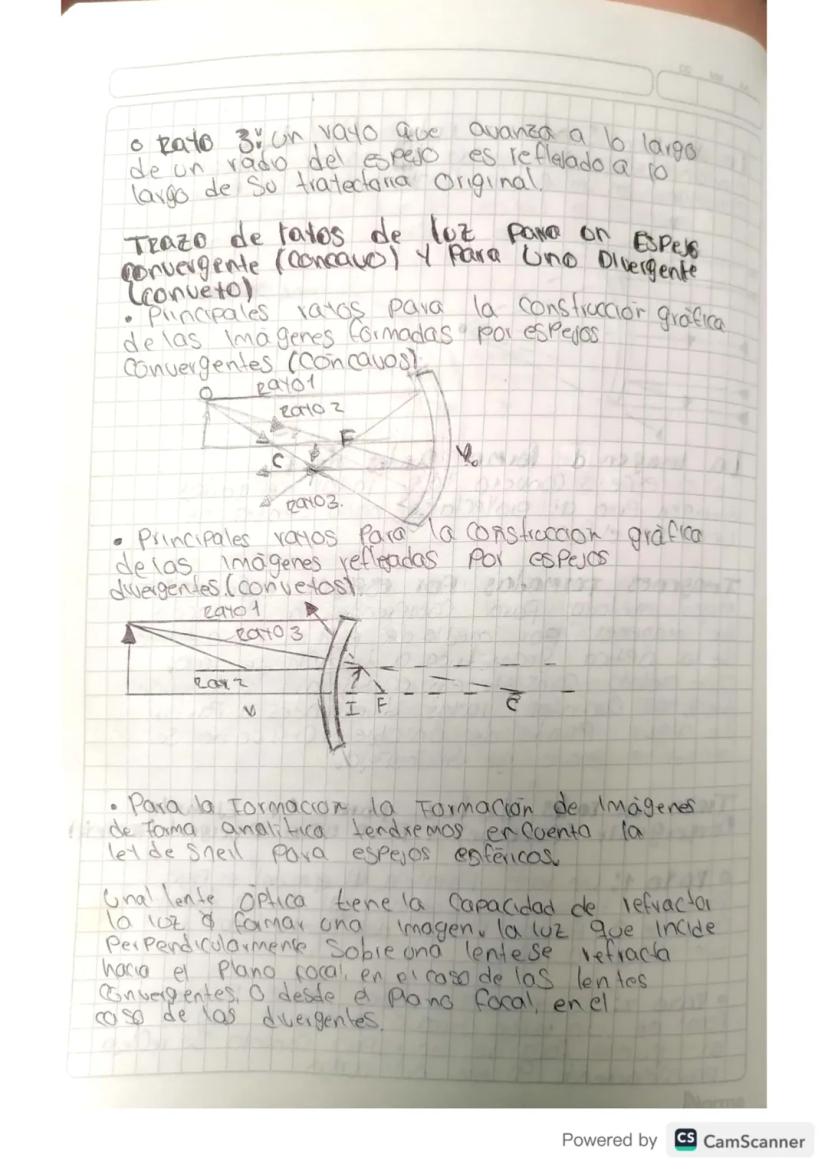 o Rayo 3: un rayo que avanza a lo largo
de un radio del espejo es reflejado a lo
largo de su trayectoria original.
Trazo de rayos de luz para un Espejo
convergente (concavo) y para Uno Divergente
(conveto)
• Principales rayos para la construcción gráfica
de las imágenes formadas por espejos
convergentes (concavos)
Rayo 1
O
Rayo 2
F
C
Rayo 3.
• Principales rayos para la construccion gráfica
de las imágenes reflejadas por espejos
divergentes (convetos)
Rayo 1
Rayo 3
Ray 2
I F C
• Para la Formacion la Formación de Imágenes
de forma analítica tendremos en cuenta la
ley de Snell para espejos esféricos
Unal lente óptica tiene la capacidad de refractar
la luz y formar una imagen. la luz que incide
Perpendicularmente sobre una lente se refracta
hacia el plano focal, en el caso de las lentes
convergentes, o desde el plano focal, en el
caso de las divergentes.
Norma
Powered by CS CamScanner